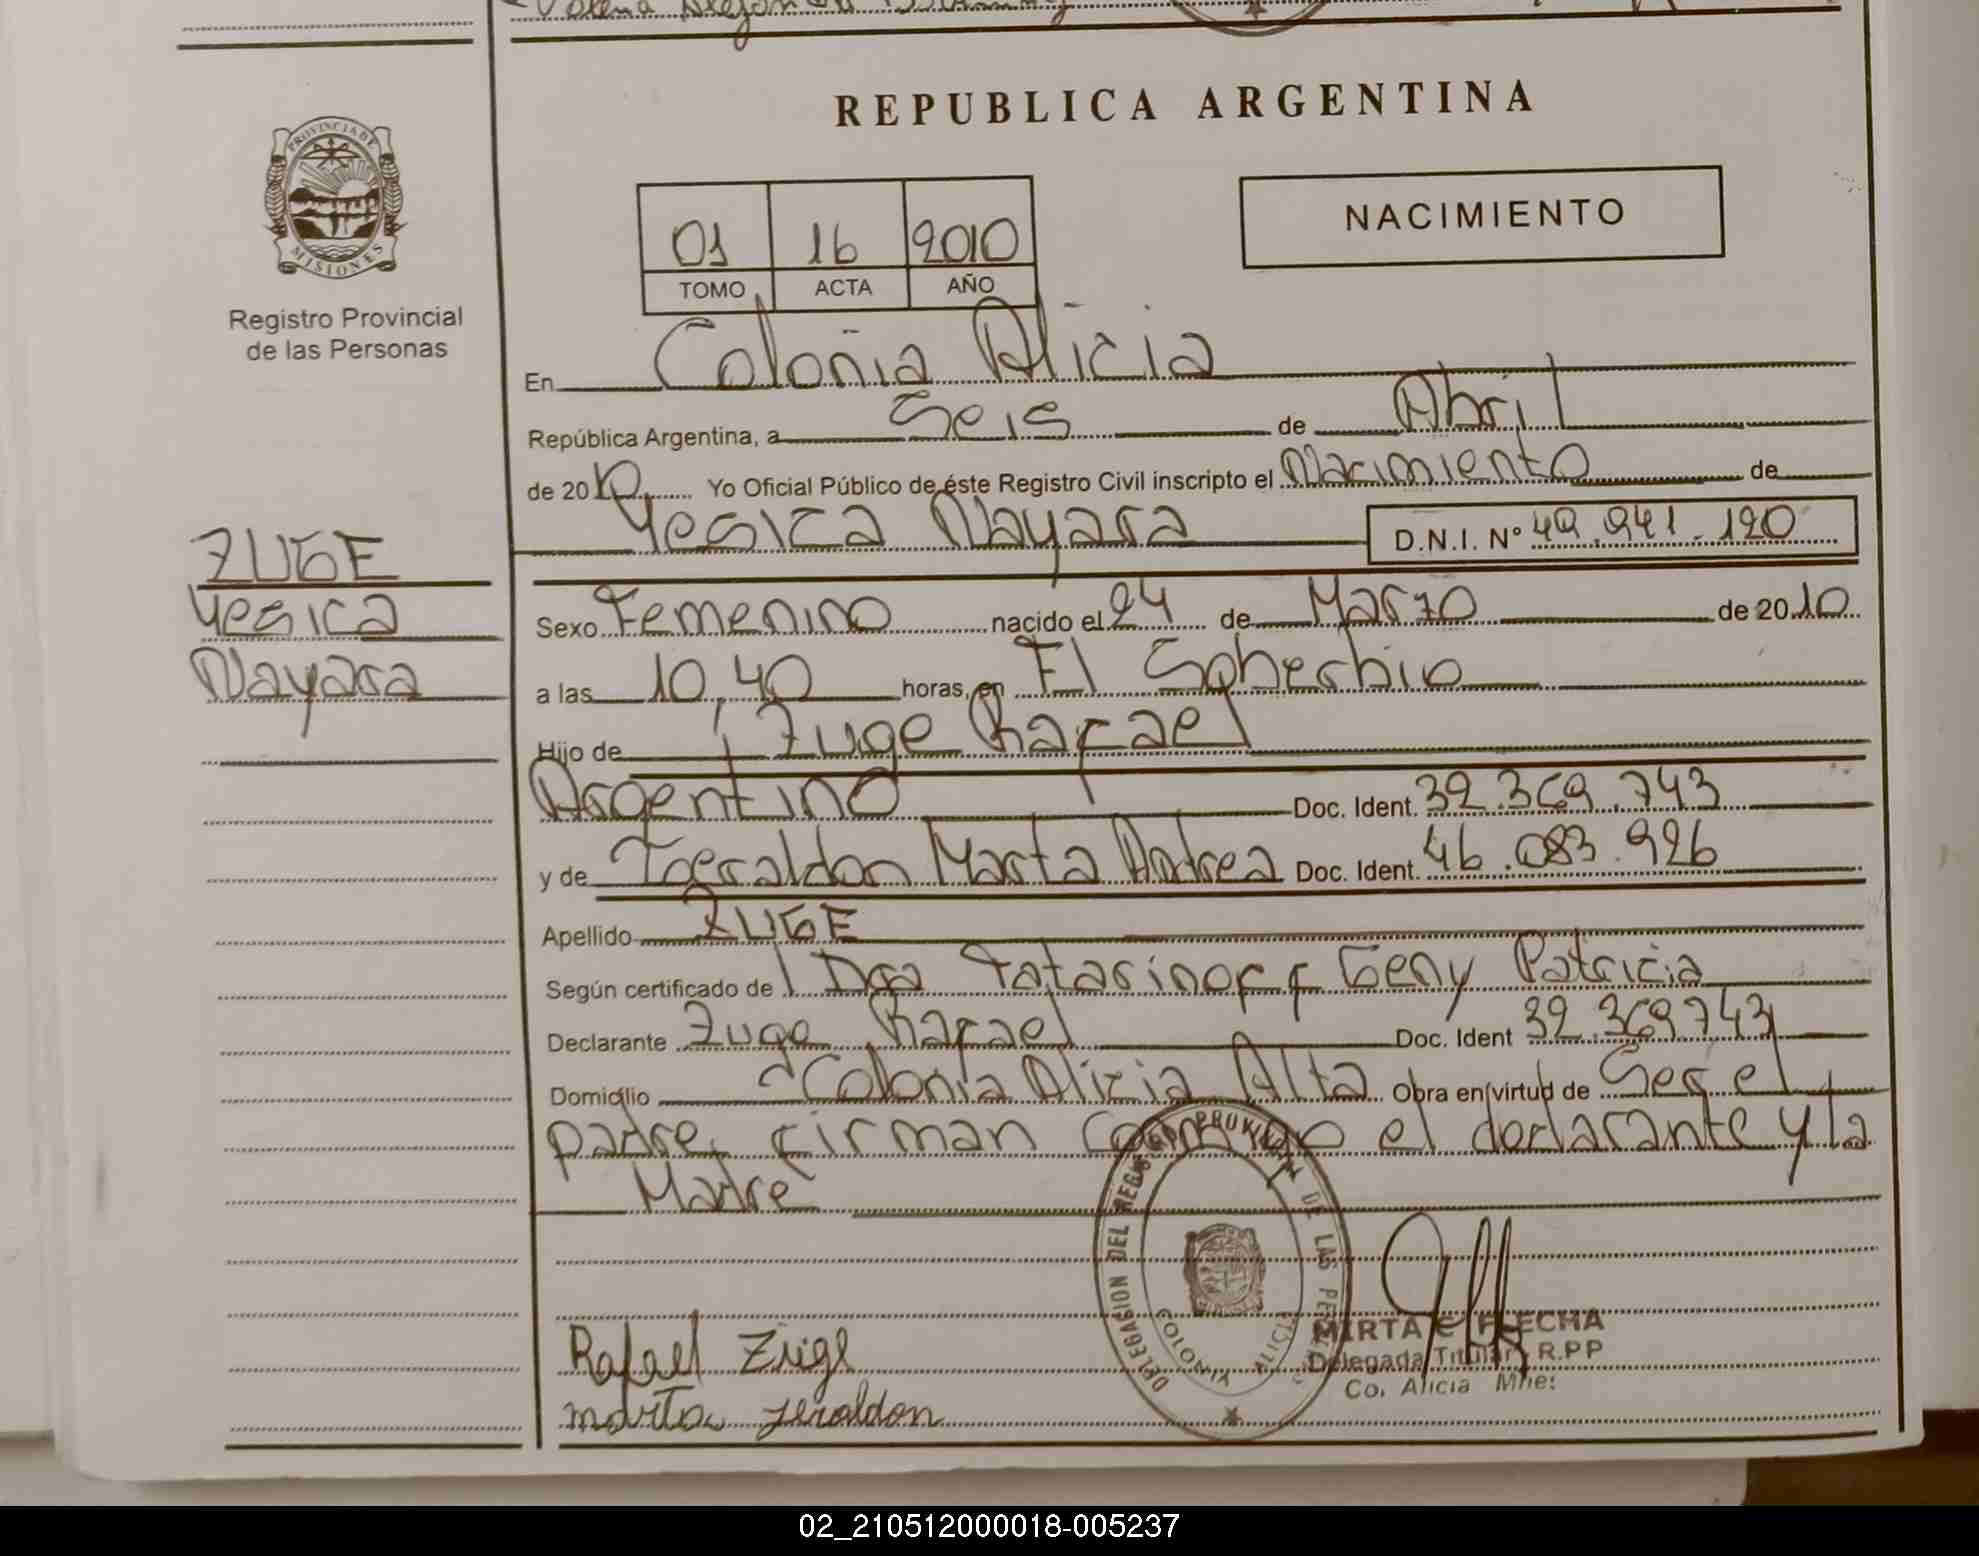 REPUBLICA ARGENTINA
PROVINCIA DE
MISIONES
Registro Provincial
de las Personas
NACIMIENTO
01 16 2010
TOMO ACTA AÑO
En Coloñia Alicia
República Argentina, a Seis de Abril
de 2010 Yo Oficial Público de éste Registro Civil inscripto el Nacimiento de
Yesica Nayara D.N.I. Nº 49.941.120
ZUGE
Yesica
Nayara
Sexo Femenino nacido el 24 de Marzo de 2010
a las 10,40 horas, en El Soberbio
Hijo de Zuge Rafael
Argentino Doc. Ident. 32.369.743
y de Marta Andrea Doc. Ident. 46.083.926
Apellido ZUGE
Según certificado de Dra Tatarinoff Geny Patricia
Declarante Zuge Rafael Doc. Ident 32.369743
Domicilio Colonia Alicia Alta Obra en virtud de Ser el
padre, firman conmigo el declarante y la
Madre
DELEGASION DEL REGISTRO PROVINCIAL DE LAS PERSONAS
COLONIA ALICIA
Rafael Zuge
marta jeraldon
MIRTA C FLECHA
Delegada Titular R.P.P
Co. Alicia Mnes
02_210512000018-005237